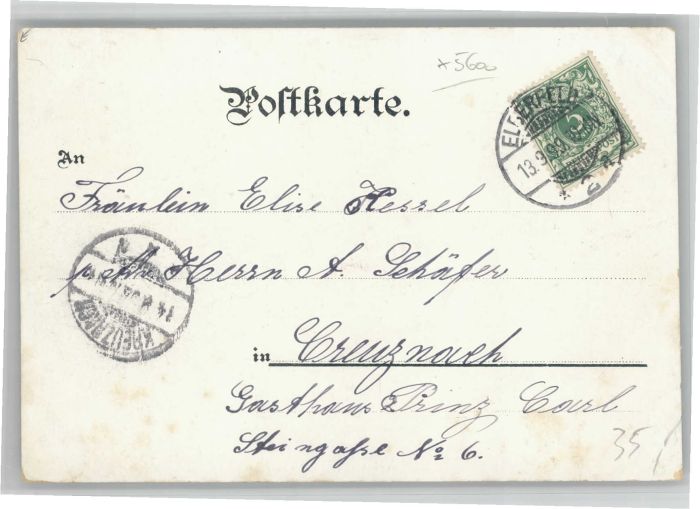 x 5600
Postkarte.
ELBERFELD
13.9.99
5
An
Fräulein Elise Kessel
p. Adr. Herrn A. Schäfer
KREUZNACH
14.9.99
in Creuznach
Gasthaus Prinz Carl
Steingasse No 6.
35